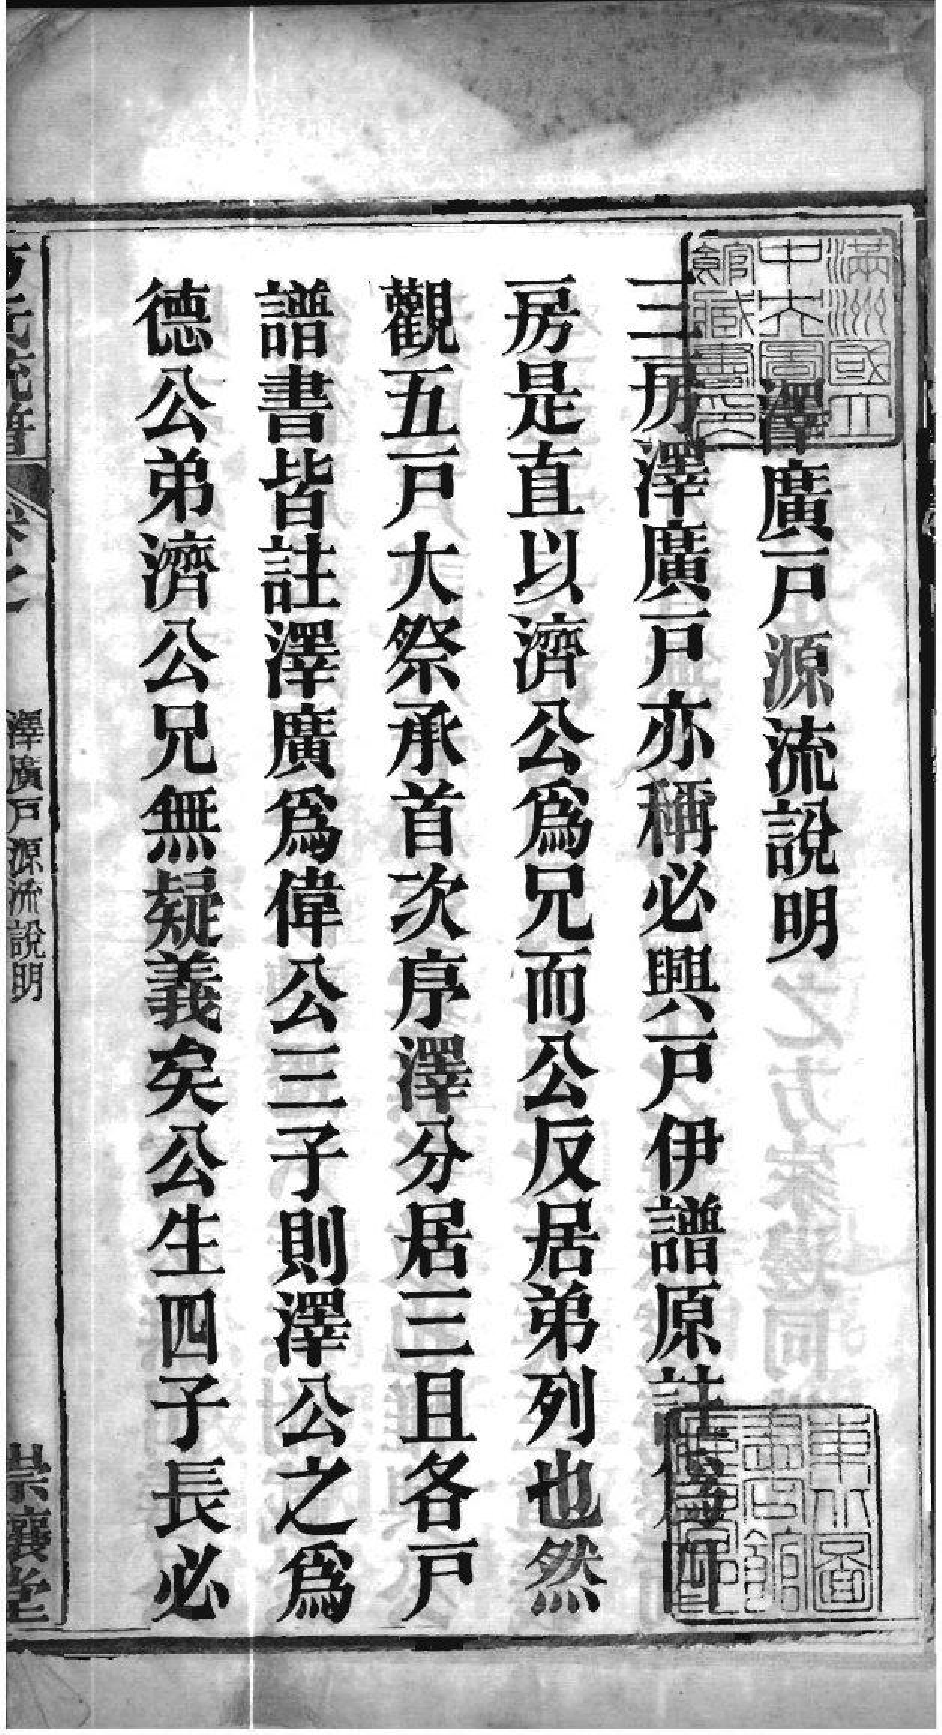 澤廣戸源流說明
三房澤廣戸亦稱必興戸伊譜原註爲四
房是直以濟公爲兄而公反居弟列也然
觀五戸大祭承首次序澤分居三且各戸
譜書皆註澤廣爲偉公三子則澤公之爲
德公弟濟公兄無疑義矣公生四子長必
氏統譜
卷之
澤廣戸源流說明
崇讓堂
滿洲國立
中央圖
館藏書印